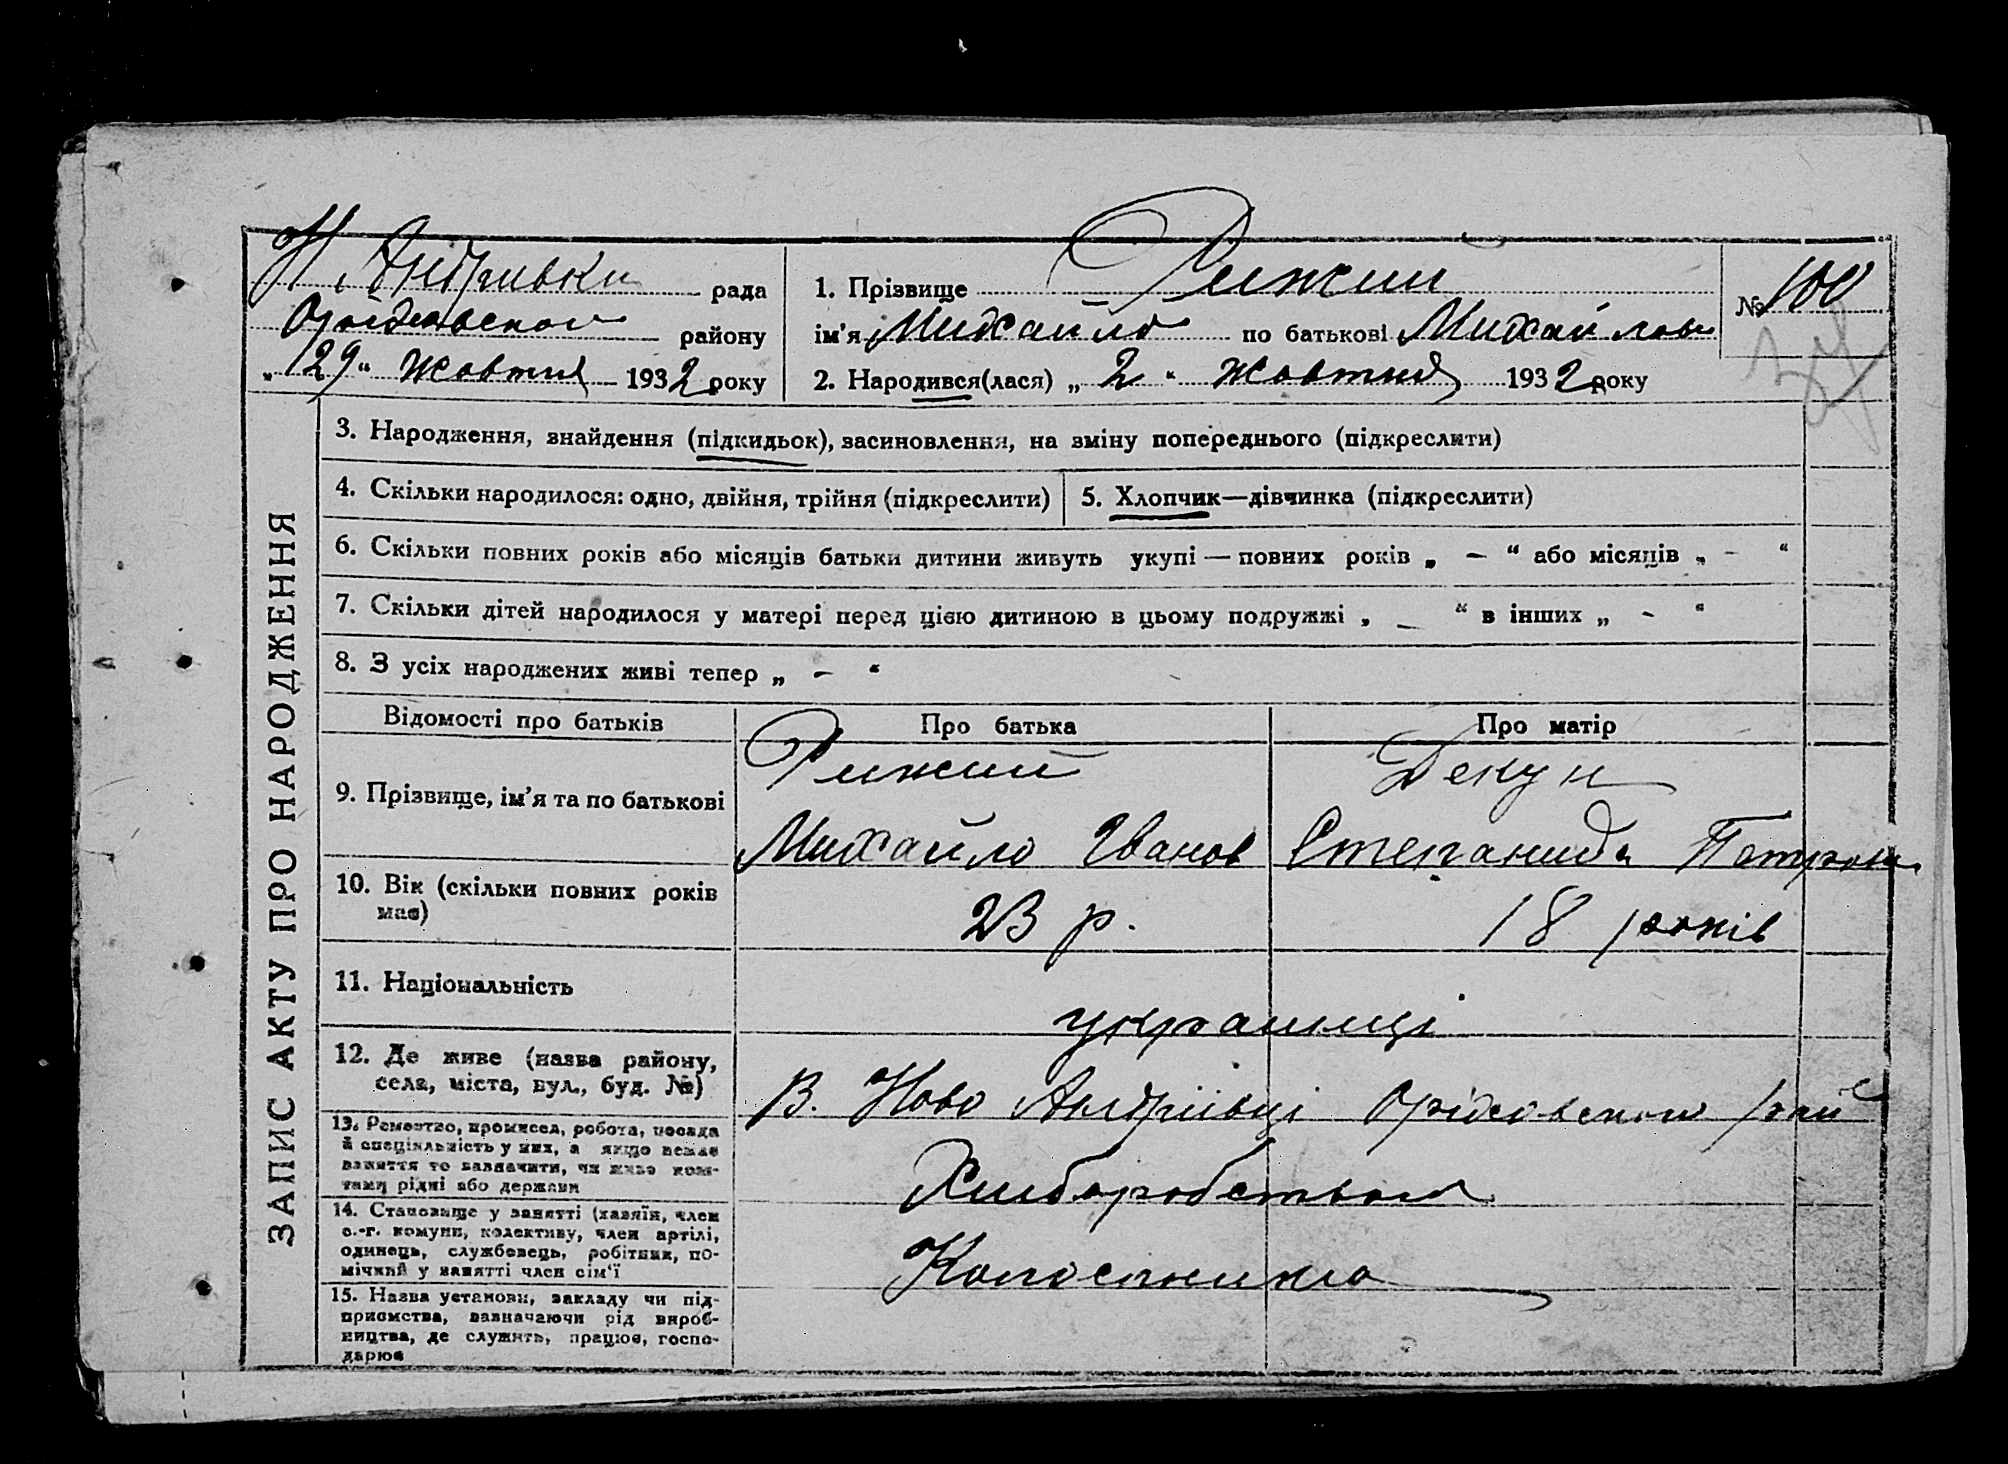 Н Андриівки рада
Оріхівського району
„29“ жовтня 1932 року
1. Прізвище Рижий
ім'я Михайло по батькові Михайлов
№ 100
2. Народився(лася) „2“ жовтня 1932 року
ЗАПИС АКТУ ПРО НАРОДЖЕННЯ
3. Народження, знайдення (підкидьок), засиновлення, на зміну попереднього (підкреслити)
4. Скільки народилося: одно, двійня, трійня (підкреслити)
5. Хлопчик—дівчинка (підкреслити)
6. Скільки повних років або місяців батьки дитини живуть укупі — повних років „ – “ або місяців „ – “
7. Скільки дітей народилося у матері перед цією дитиною в цьому подружжі „ – “ в інших „ – “
8. З усіх народжених живі тепер „ – “
Відомості про батьків
Про батька
Про матір
9. Прізвище, ім'я та по батькові
Рижий
Михайло Іванов
Декун
Степанида Петров
10. Вік (скільки повних років
має)
23 р.
18 років
11. Національність
українці
12. Де живе (назва району,
села, міста, вул., буд. №)
В. Ново Андріівці Оріховського рай
13. Ремество, промисел, робота, посада
й спеціяльність у них, а якщо немає
заняття то зазначити, чи живе кош-
тами рідні або держави
Хліборобством
14. Становище у занятті (хазяїн, член
с.-г. комуни, колективу, член артілі,
одинець, службовець, робітник, по-
мічний у занятті член сім'ї
Колоспники
15. Назва установи, закладу чи під-
приємства, зазначаючи рід вироб-
ництва, де служить, працює, госпо-
дарює